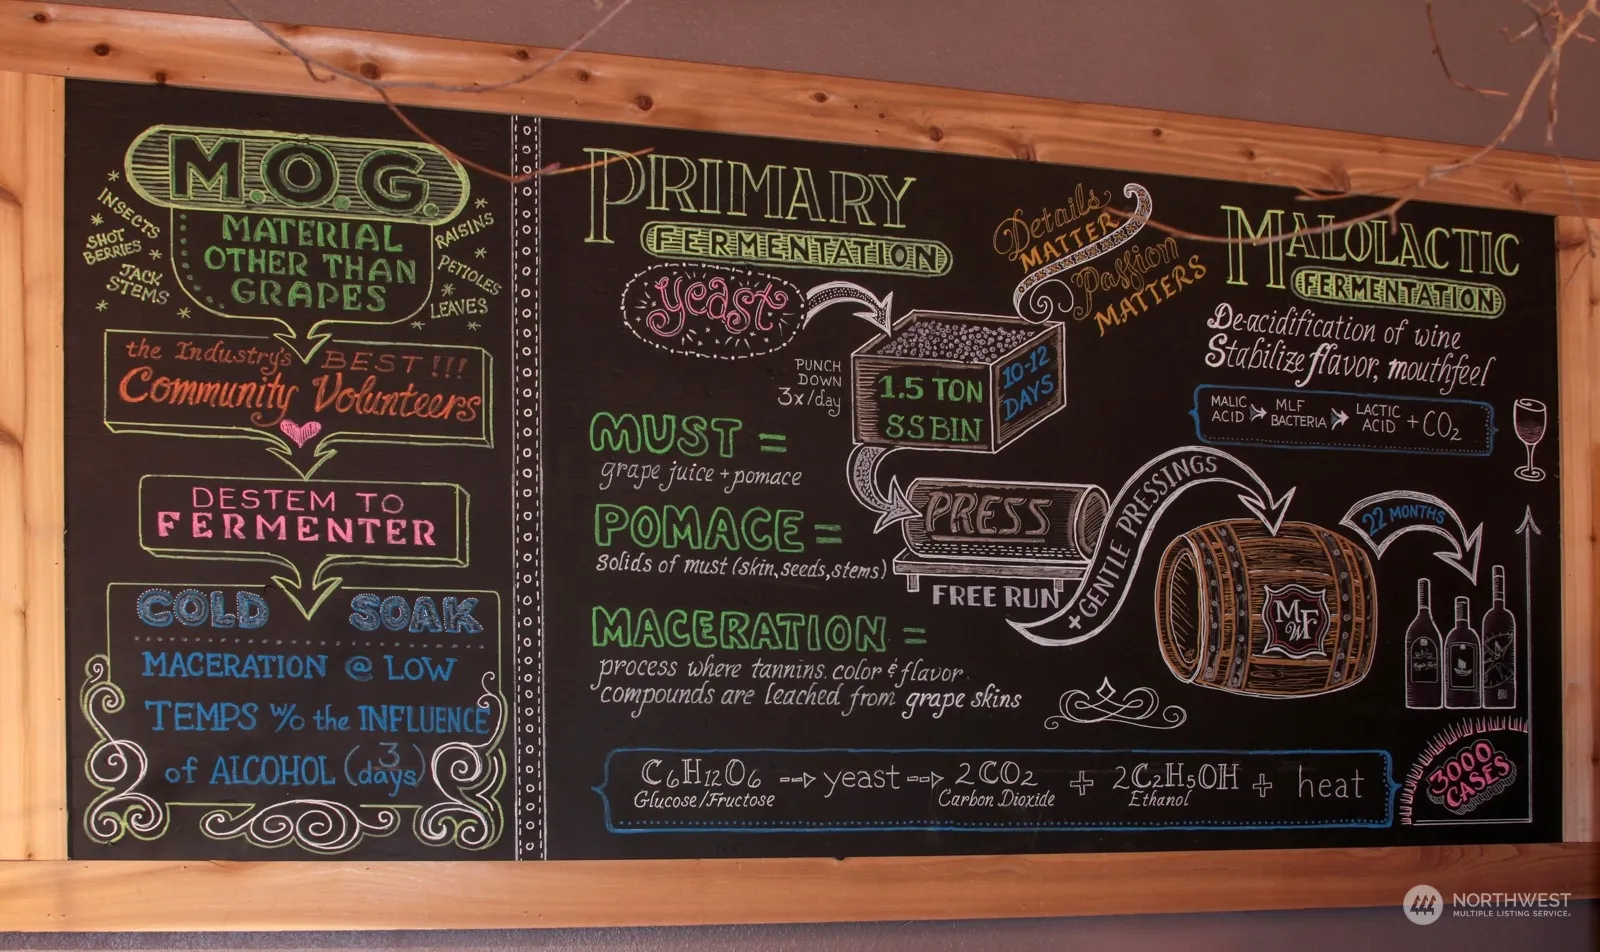 M.O.G.
MATERIAL
OTHER THAN
GRAPES
INSECTS
SHOT
BERRIES
JACK
STEMS
RAISINS
PETIOLES
LEAVES
the Industry's BEST!!!
Community Volunteers
DESTEM TO
FERMENTER
COLD SOAK
MACERATION @ LOW
TEMPS w/o the INFLUENCE
of ALCOHOL (3 days)
PRIMARY
FERMENTATION
yeast
PUNCH
DOWN
3x/day
1.5 TON
SS BIN
10-12
DAYS
Details
MATTER
Passion
MATTERS
MUST =
grape juice + pomace
POMACE =
solids of must (skin, seeds, stems)
MACERATION =
process where tannins, color & flavor
compounds are leached from grape skins
PRESS
FREE RUN
+ GENTLE PRESSINGS
MALOLACTIC
FERMENTATION
De-acidification of wine
Stabilize flavor, mouthfeel
MALIC
ACID
MLF
BACTERIA
LACTIC
ACID
+ CO2
22 MONTHS
MWF
C6H12O6 --> yeast --> 2CO2 + 2C2H5OH + heat
Glucose/Fructose Carbon Dioxide Ethanol
3000
CASES
NORTHWEST
MULTIPLE LISTING SERVICE